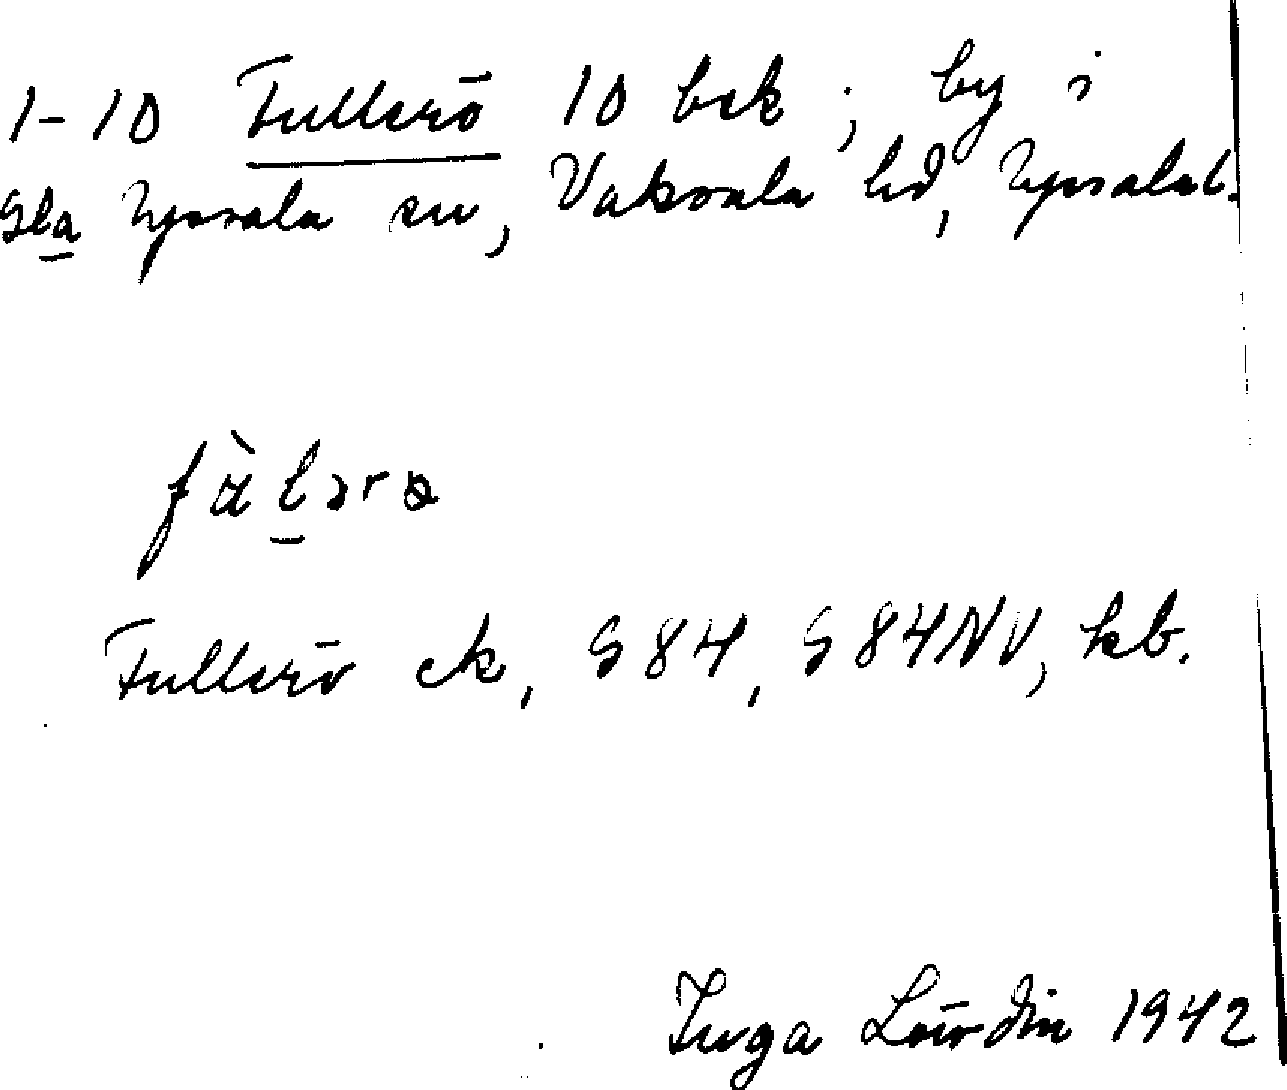 1-10 Fullerö 10 bsk; by i
Gla Uppsala sn, Vaksala hd, Uppsala l.
fàlǝrɷ
Fullerö ek, G 84, G 84 NV, kb.
Inga Lördin 1942